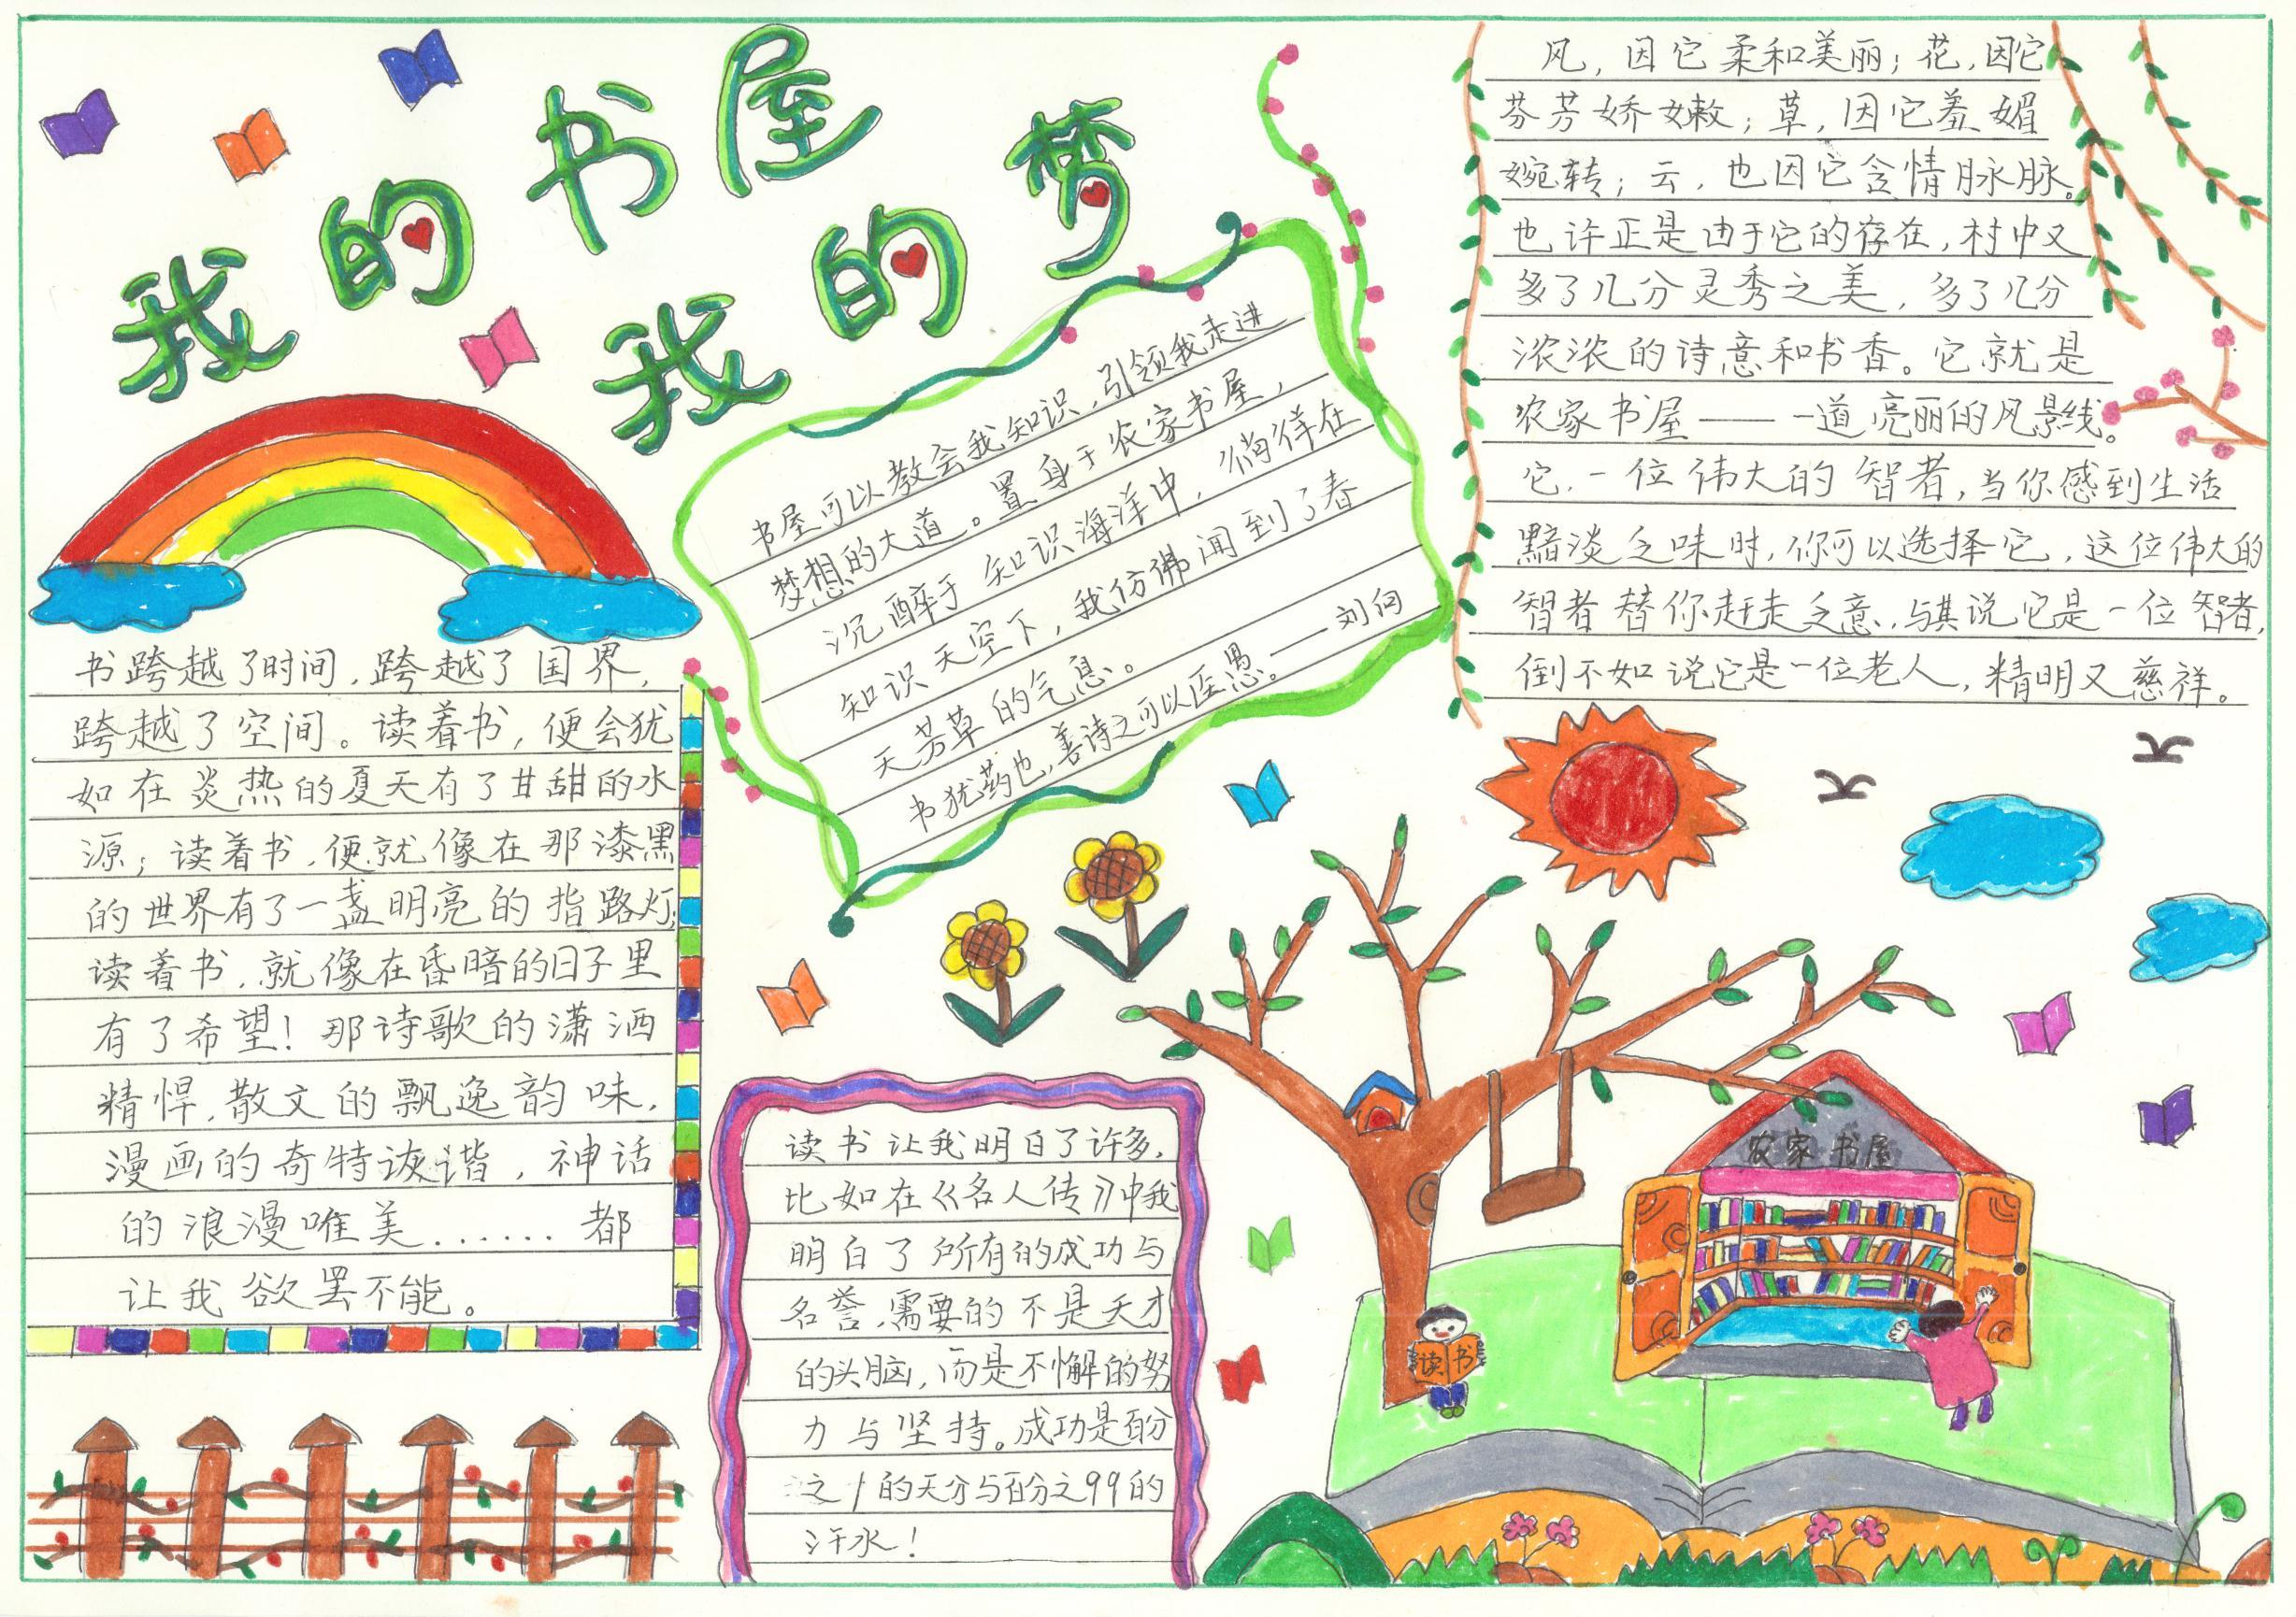 我的书屋
我的梦
书屋可以教会我知识，引领我走进
梦想的大道。置身于农家书屋，
沉醉于知识海洋中，徜徉在
知识天空下，我仿佛闻到了春
天芳草的气息。
书犹药也，善诗之可以医愚。——刘向
风，因它柔和美丽；花，因它
芬芳娇嫩；草，因它羞媚
婉转；云，也因它含情脉脉。
也许正是由于它的存在，村中又
多了几分灵秀之美，多了几分
浓浓的诗意和书香。它就是
农家书屋——一道亮丽的风景线。
它，一位伟大的智者，当你感到生活
黯淡乏味时，你可以选择它，这位伟大的
智者替你赶走乏意，与其说它是一位智者，
倒不如说它是一位老人，精明又慈祥。
书跨越了时间，跨越了国界，
跨越了空间。读着书，便会犹
如在炎热的夏天有了甘甜的水
源；读着书，便就像在那漆黑
的世界有了一盏明亮的指路灯；
读着书，就像在昏暗的日子里
有了希望！那诗歌的潇洒
精悍，散文的飘逸韵味，
漫画的奇特诙谐，神话
的浪漫唯美......都
让我欲罢不能。
读书让我明白了许多，
比如在《名人传》中我
明白了所有的成功与
名誉，需要的不是天才
的头脑，而是不懈的努
力与坚持。成功是百分
之1的天分与百分之99的
汗水！
农家书屋
读书